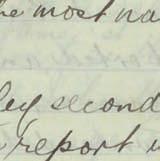 he most na
ley second
report i